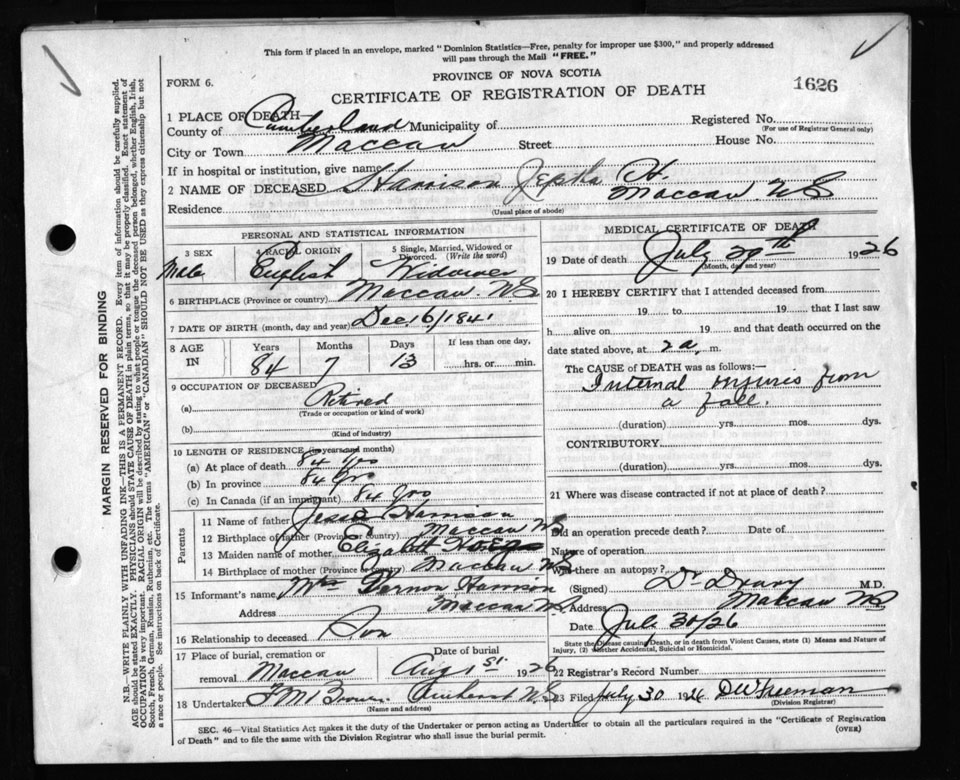 This form if placed in an envelope, marked "Dominion Statistics—Free, penalty for improper use $300," and properly addressed
will pass through the Mail "FREE."
PROVINCE OF NOVA SCOTIA
FORM 6.
CERTIFICATE OF REGISTRATION OF DEATH
1626
1 PLACE OF DEATH—
County of Cumberland Municipality of
Registered No.
(For use of Registrar General only)
City or Town Maccan Street House No.
If in hospital or institution, give name
2 NAME OF DECEASED Harrison Jepha H.
Residence Maccan N.S.
(Usual place of abode)
PERSONAL AND STATISTICAL INFORMATION
3 SEX 4 RACIAL ORIGIN 5 Single, Married, Widowed or Divorced. (Write the word)
Male English Widower
6 BIRTHPLACE (Province or country) Maccan N.S.
7 DATE OF BIRTH (month, day and year) Dec. 16/1841
8 AGE IN Years Months Days If less than one day,
84 7 13 hrs. or min.
9 OCCUPATION OF DECEASED
(a) Retired
(Trade or occupation or kind of work)
(b)
(Kind of industry)
10 LENGTH OF RESIDENCE (in years and months)
(a) At place of death 84 yrs
(b) In province 84 yrs
(c) In Canada (if an immigrant) 84 yrs
Parents
11 Name of father Harrison
12 Birthplace of father (Province or country) Maccan N.S.
13 Maiden name of mother Elizabeth
14 Birthplace of mother (Province or country) Maccan N.S.
15 Informant's name Mrs Vernon Harrison
Address Maccan N.S.
16 Relationship to deceased Son
17 Place of burial, cremation or removal Maccan
Date of burial Aug 1st. 1926
18 Undertaker Amherst N.S.
(Name and address)
MEDICAL CERTIFICATE OF DEATH
19 Date of death July 29th 1926
(Month, day and year)
20 I HEREBY CERTIFY that I attended deceased from
19 to 19 that I last saw
h alive on 19 and that death occurred on the
date stated above, at 2 a. m.
The CAUSE of DEATH was as follows:—
Internal injuries from
a fall.
(duration) yrs. mos. dys.
CONTRIBUTORY
(duration) yrs. mos. dys.
21 Where was disease contracted if not at place of death?
Did an operation precede death? Date of
Nature of operation
Was there an autopsy?
(Signed) Dr. Drury M.D.
Address Maccan N.S.
Date July 30/26
State the Disease causing Death, or in death from Violent Causes, state (1) Means and Nature of
Injury, (2) Whether Accidental, Suicidal or Homicidal.
22 Registrar's Record Number
23 Filed July 30 1926 D W Freeman
(Division Registrar)
SEC. 46—Vital Statistics Act makes it the duty of the Undertaker or person acting as Undertaker to obtain all the particulars required in the "Certificate of Registration
of Death" and to file the same with the Division Registrar who shall issue the burial permit. (OVER)
MARGIN RESERVED FOR BINDING
N.B.—WRITE PLAINLY WITH UNFADING INK—THIS IS A PERMANENT RECORD. Every item of information should be carefully supplied.
AGE should be stated EXACTLY. PHYSICIANS should STATE CAUSE OF DEATH in plain terms, so that it may be properly classified. Exact statement of
OCCUPATION is very important. RACIAL ORIGIN will be described by stating to what people or tongue the deceased person belonged, whether English, Irish,
Scotch, French, German, Russian, Ruthenian, etc. The terms "AMERICAN" or "CANADIAN" SHOULD NOT BE USED as they express citizenship but not
a race or people. See instructions on back of Certificate.